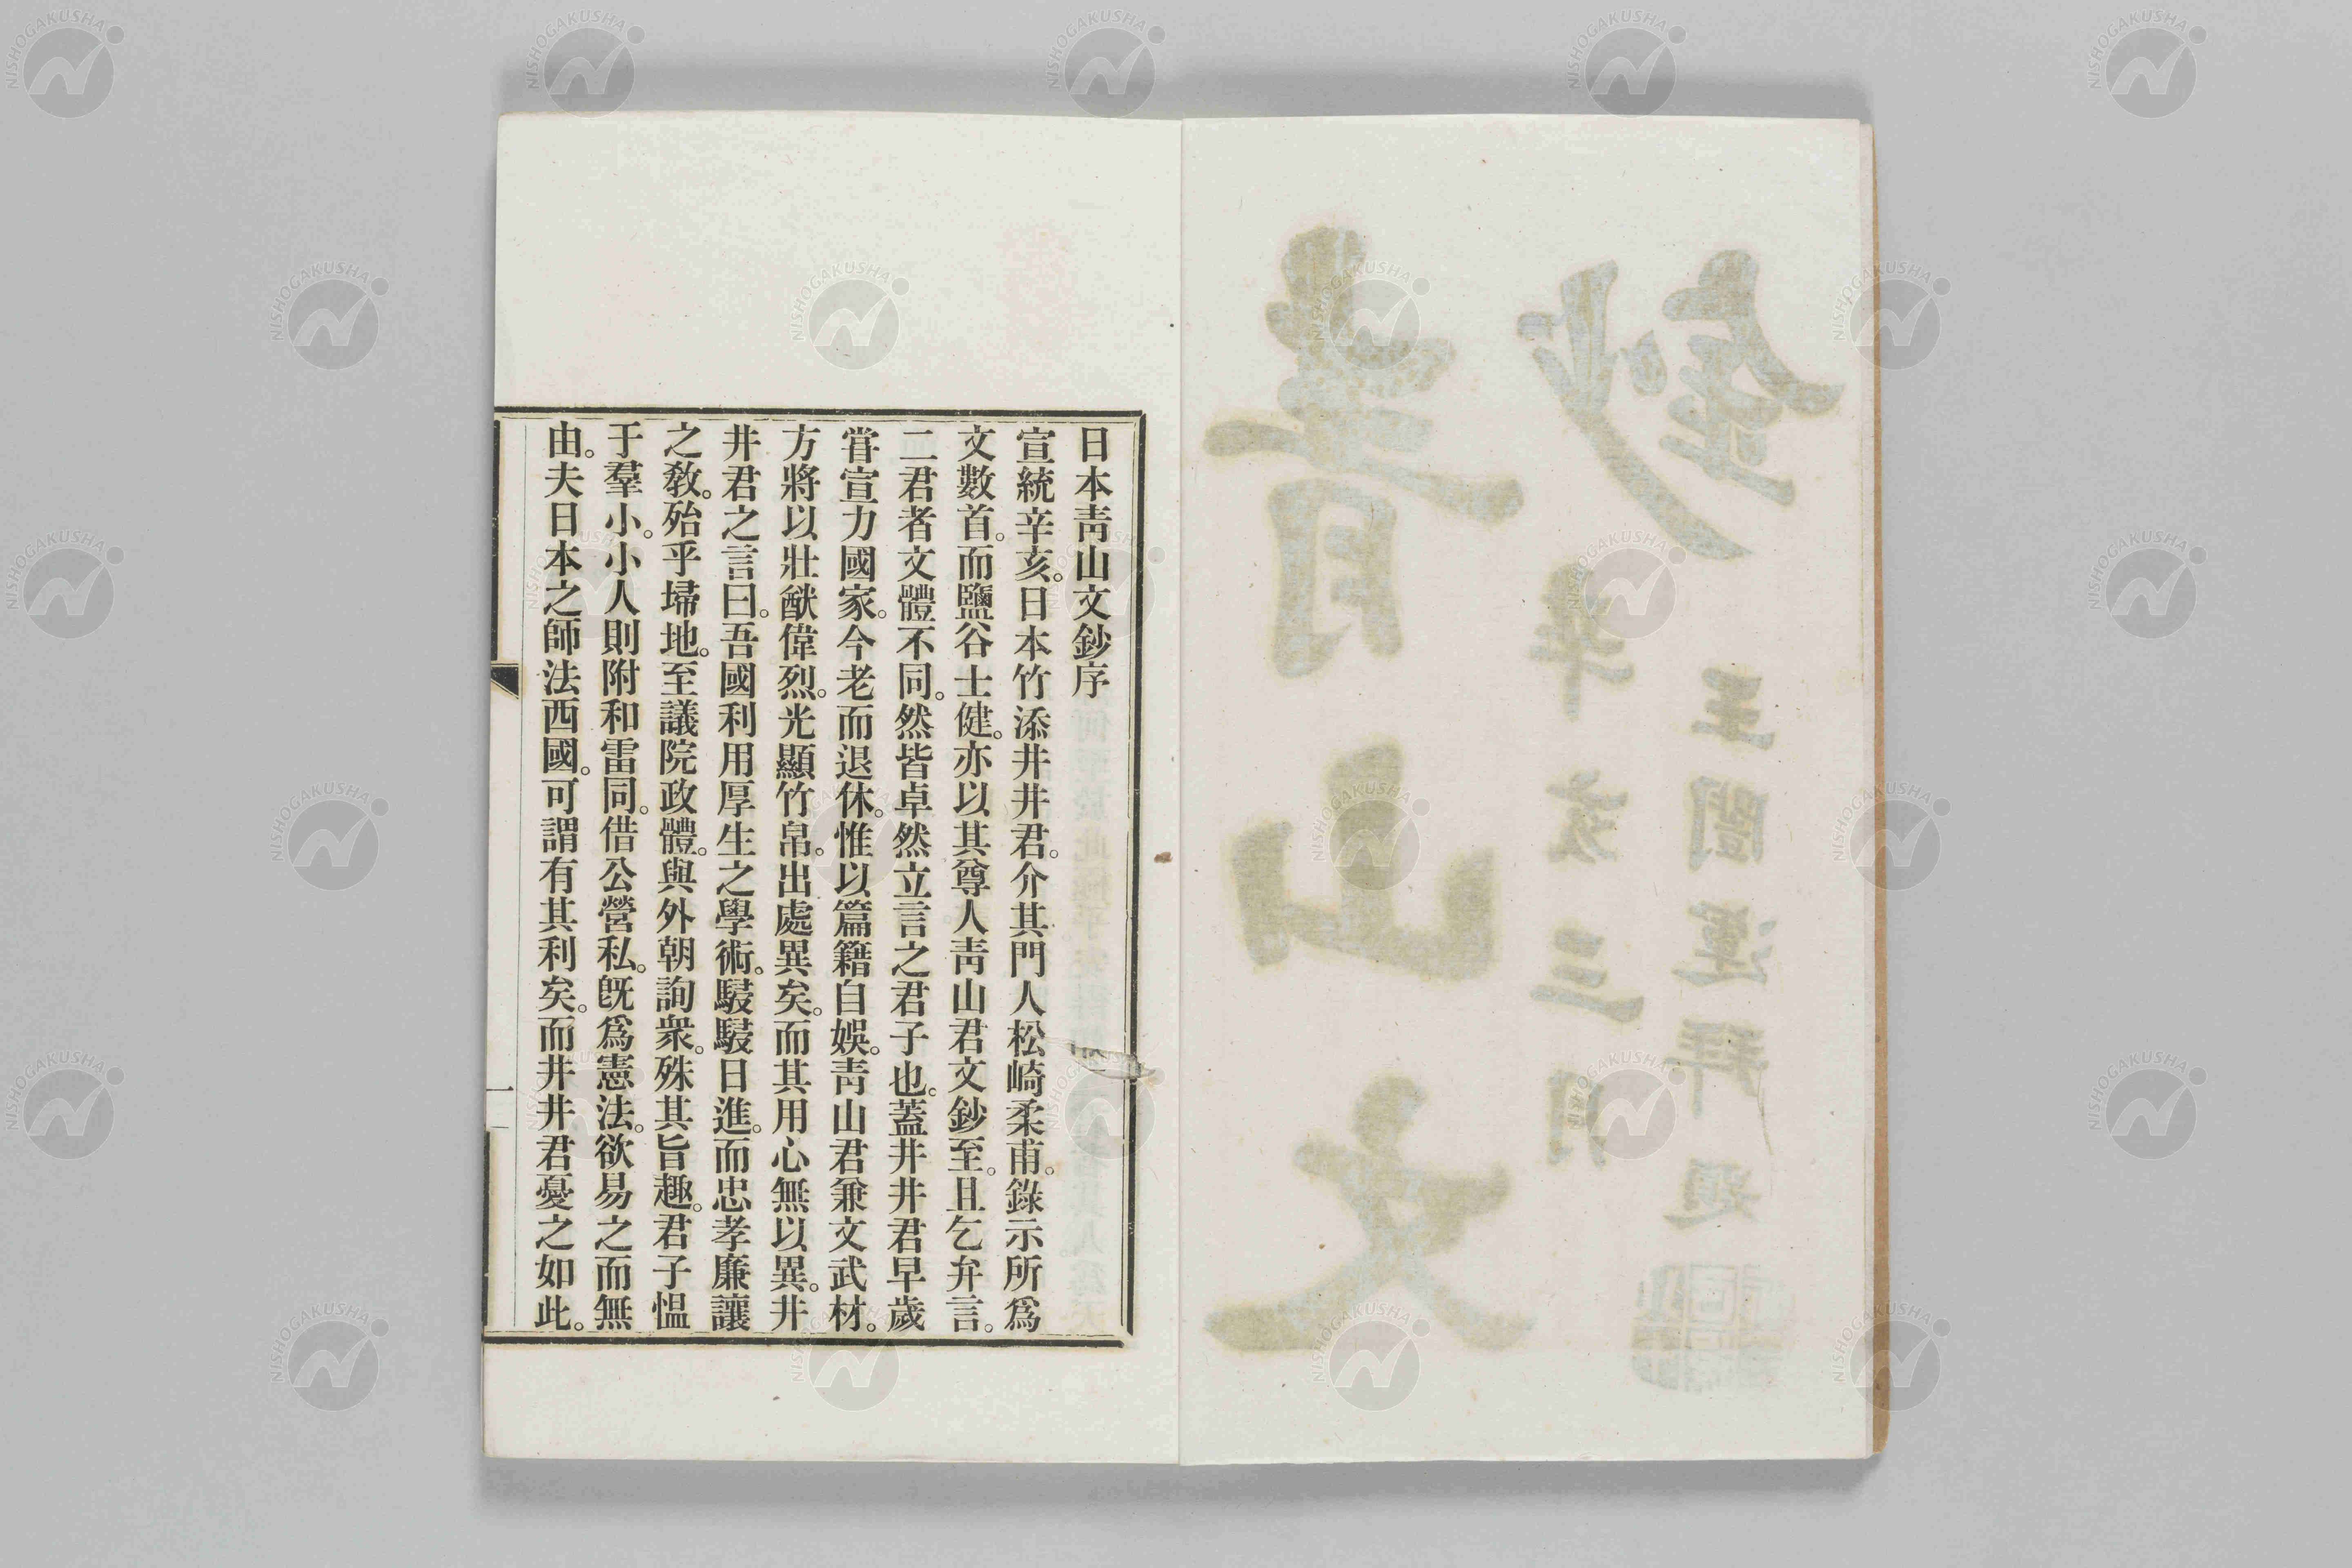 青山文
鈔
辛亥三月
王闓運拜題
日本靑山文鈔序
宣統辛亥。日本竹添井井君。介其門人松崎柔甫。錄示所爲
文數首。而鹽谷士健。亦以其尊人靑山君文鈔至。且乞弁言。
二君者文體不同。然皆卓然立言之君子也。蓋井井君早歲
嘗宣力國家。今老而退休。惟以篇籍自娛。靑山君兼文武材。
方將以壯猷偉烈。光顯竹帛。出處異矣。而其用心無以異。井
井君之言曰。吾國利用厚生之學術。駸駸日進。而忠孝廉讓
之敎。殆乎埽地。至議院政體。與外朝詢衆。殊其旨趣。君子慍
于羣小。小人則附和雷同。借公營私。旣爲憲法。欲易之而無
由。夫日本之師法西國。可謂有其利矣。而井井君憂之如此。
一
NISHOGAKUSHA